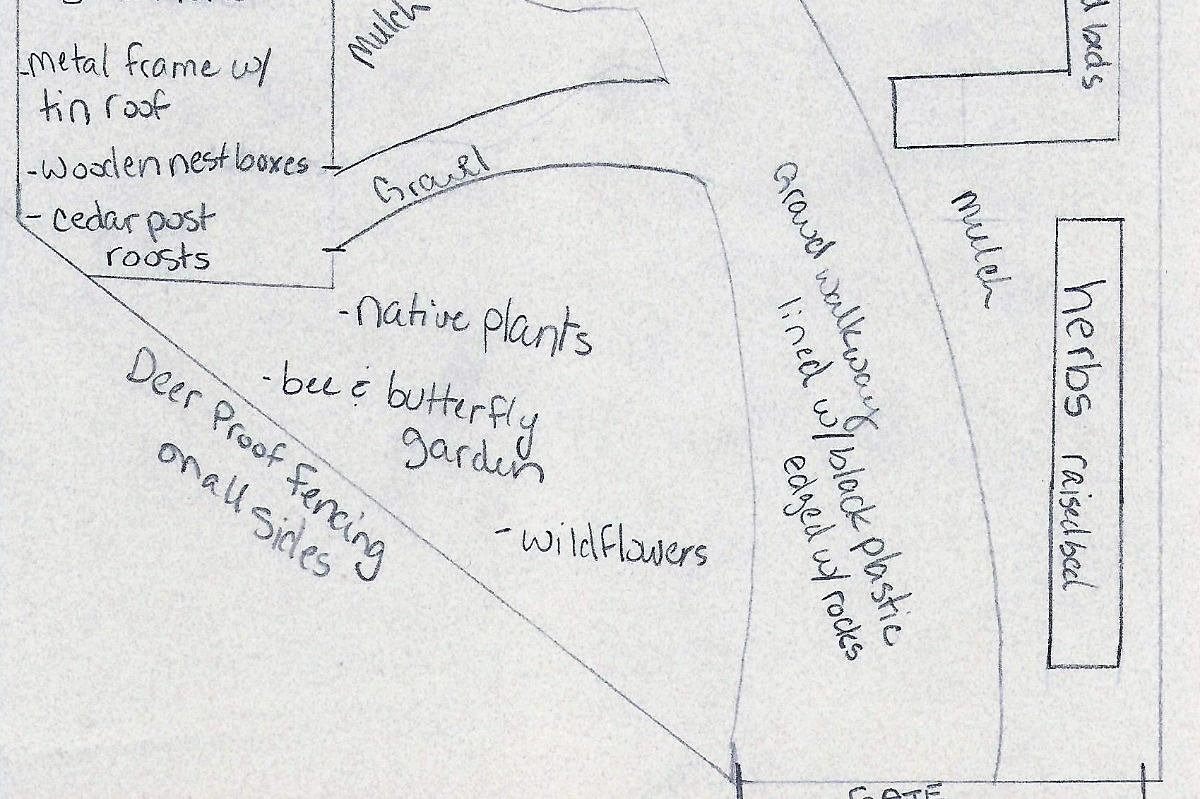 Mulch
-metal frame w/
tin roof
-wooden nest boxes
- cedar post
roosts
Gravel
-native plants
-bee & butterfly
garden
-wildflowers
Deer Proof Fencing
on all sides
Gravel walkway
lined w/ black plastic
edged w/ rocks
Mulch
beds
herbs raised bed
GATE